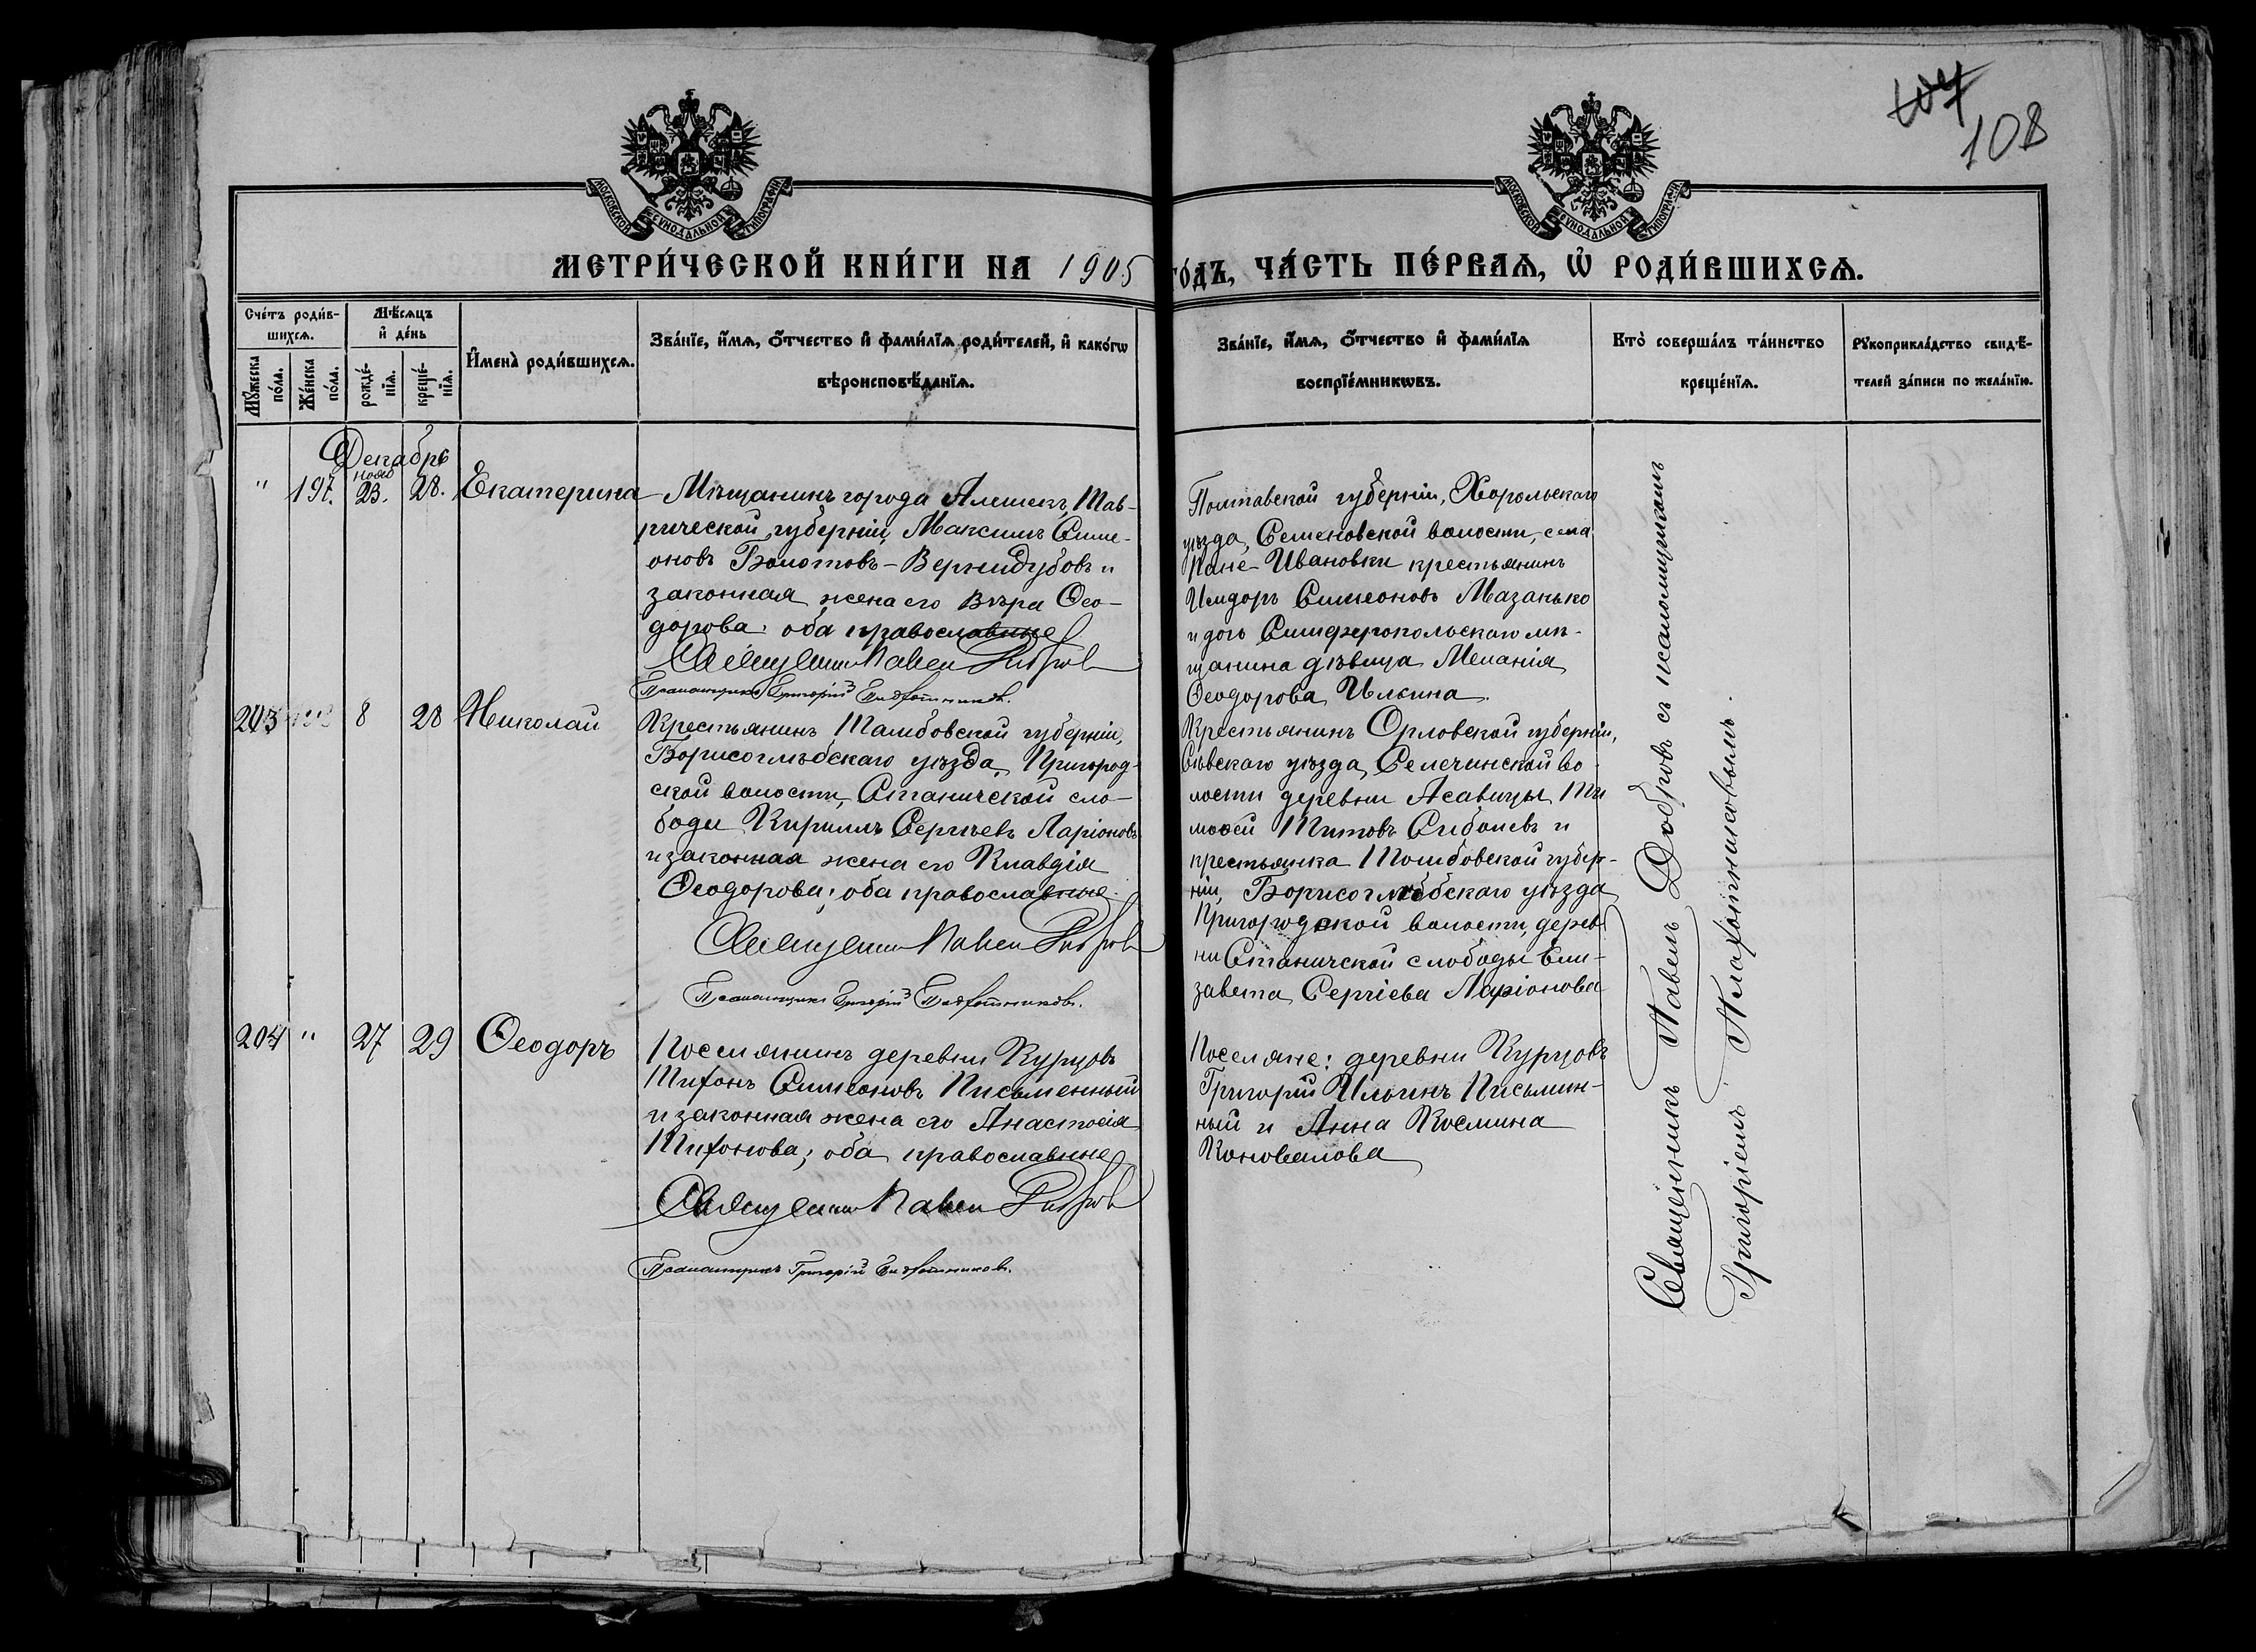 107
108
МОСКОВСКОЙ СѴНОДАЛЬНОЙ ТИПОГРАФІИ
МОСКОВСКОЙ СѴНОДАЛЬНОЙ ТИПОГРАФІИ
МЕТРИ́ЧЕСКОЙ КНИ́ГИ НА 1905
ГО́ДЪ, ЧА́СТЬ ПЕ́РВАЯ, Ѡ҆ РОДИ́ВШИХСЯ.
Сче́тъ роди́в-
шихся.
Мꙋ́жеска по́ла.
Же́нска по́ла.
Мѣ́сяцъ
и҆ де́нь
рожде́-
нїя.
креще́-
нїя.
И҆мена̀ роди́вшихся.
Зва́нїе, и҆́мя, ѻ҆́тчество и҆ фами́лїя роди́телей, и҆ како́гѡ
вѣроисповѣ́данїя.
Зва́нїе, и҆́мя, ѻ҆́тчество и҆ фами́лїя
воспрїе́мникѡвъ.
Кто̀ соверша́лъ та́инство
креще́нїя.
Рꙋкоприкла́дство свидѣ́-
телей за́писи по жела́нїю.
Декабрь
нояб
" 197. 23. 28. Екатерина
Мѣщанинъ города Алешекъ, Тав-
рической губерніи, Максимъ Симе-
оновъ Болотовъ-Вернидубовъ и
законная жена его Вѣра Ѳео-
дорова; оба православные
Священникъ Павелъ Добровъ
Псаломщикъ Григорій
Полтавской губерніи, Хорольскаго
уѣзда, Семеновской волости, села
Пане-Ивановки крестьянинъ
Исидоръ Симеоновъ Мазанько
и дочь Симферопольскаго мѣ-
щанина дѣвица Меланія
Ѳеодорова Илькина.
203 8 28 Николай
Крестьянинъ Тамбовской губерніи,
Борисоглѣбскаго уѣзда, Пригород-
ской волости, Станичской сло-
боды Кириллъ Сергѣевъ Ларіоновъ
и законная жена его Клавдія
Ѳеодорова; оба православные.
Священникъ Павелъ Добровъ
Псаломщикъ Григорій
Крестьянинъ Орловской губерніи,
Сѣвскаго уѣзда, Селечинской во-
лости деревни Асавицы Ти
моѳей Титовъ Сиболевъ и
крестьянка Тамбовской губер-
ніи, Борисоглѣбскаго уѣзда
Пригородской волости, дерев
ни Станичской слободы Ели-
завета Сергіева Ларіонова
204 " 27 29 Ѳеодоръ
Поселянинъ деревни Курцовъ
Тихонъ Симеоновъ Письменный
и законная жена его Анастасія
Тихонова; оба православные
Священникъ Павелъ Добровъ
Псаломщикъ Григорій
Поселяне: деревни Курцовъ
Григорій Ильинъ Письмин-
ный и Анна Космина
Коновалова
Священникъ Павелъ Добровъ съ псаломщикомъ
Григоріемъ